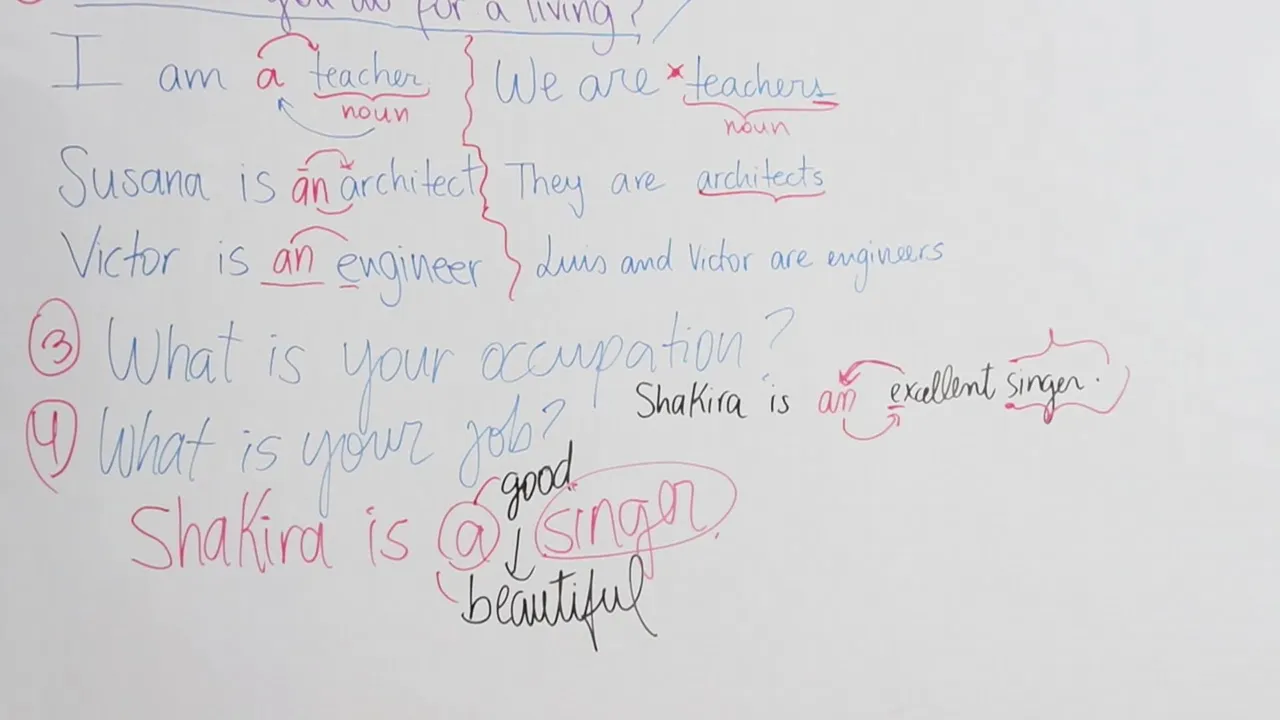 you do for a living?
I am a teacher
noun
We are x teachers
noun
Susana is an architect
They are architects
Victor is an engineer
Luis and Victor are engineers
3 What is your occupation?
Shakira is an excellent singer.
4 What is your job?
good
Shakira is a singer.
beautiful